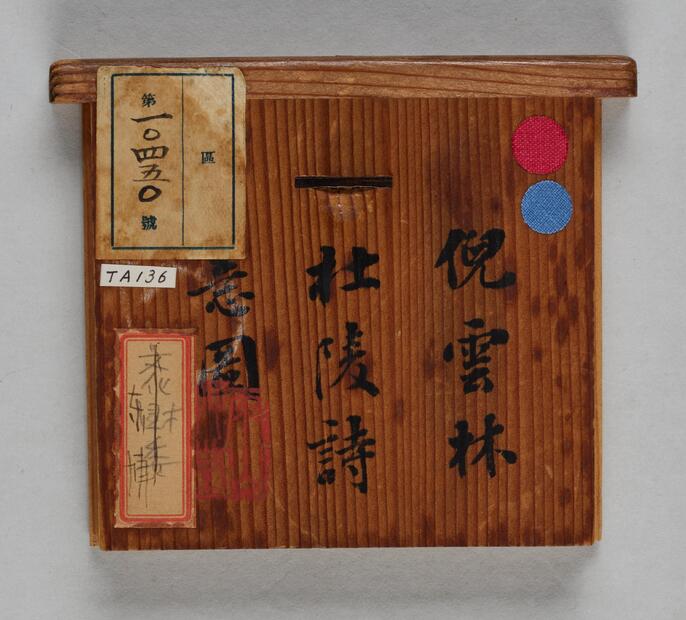 倪雲林
杜陵詩
意圖
區
第一〇四五〇號
TA136